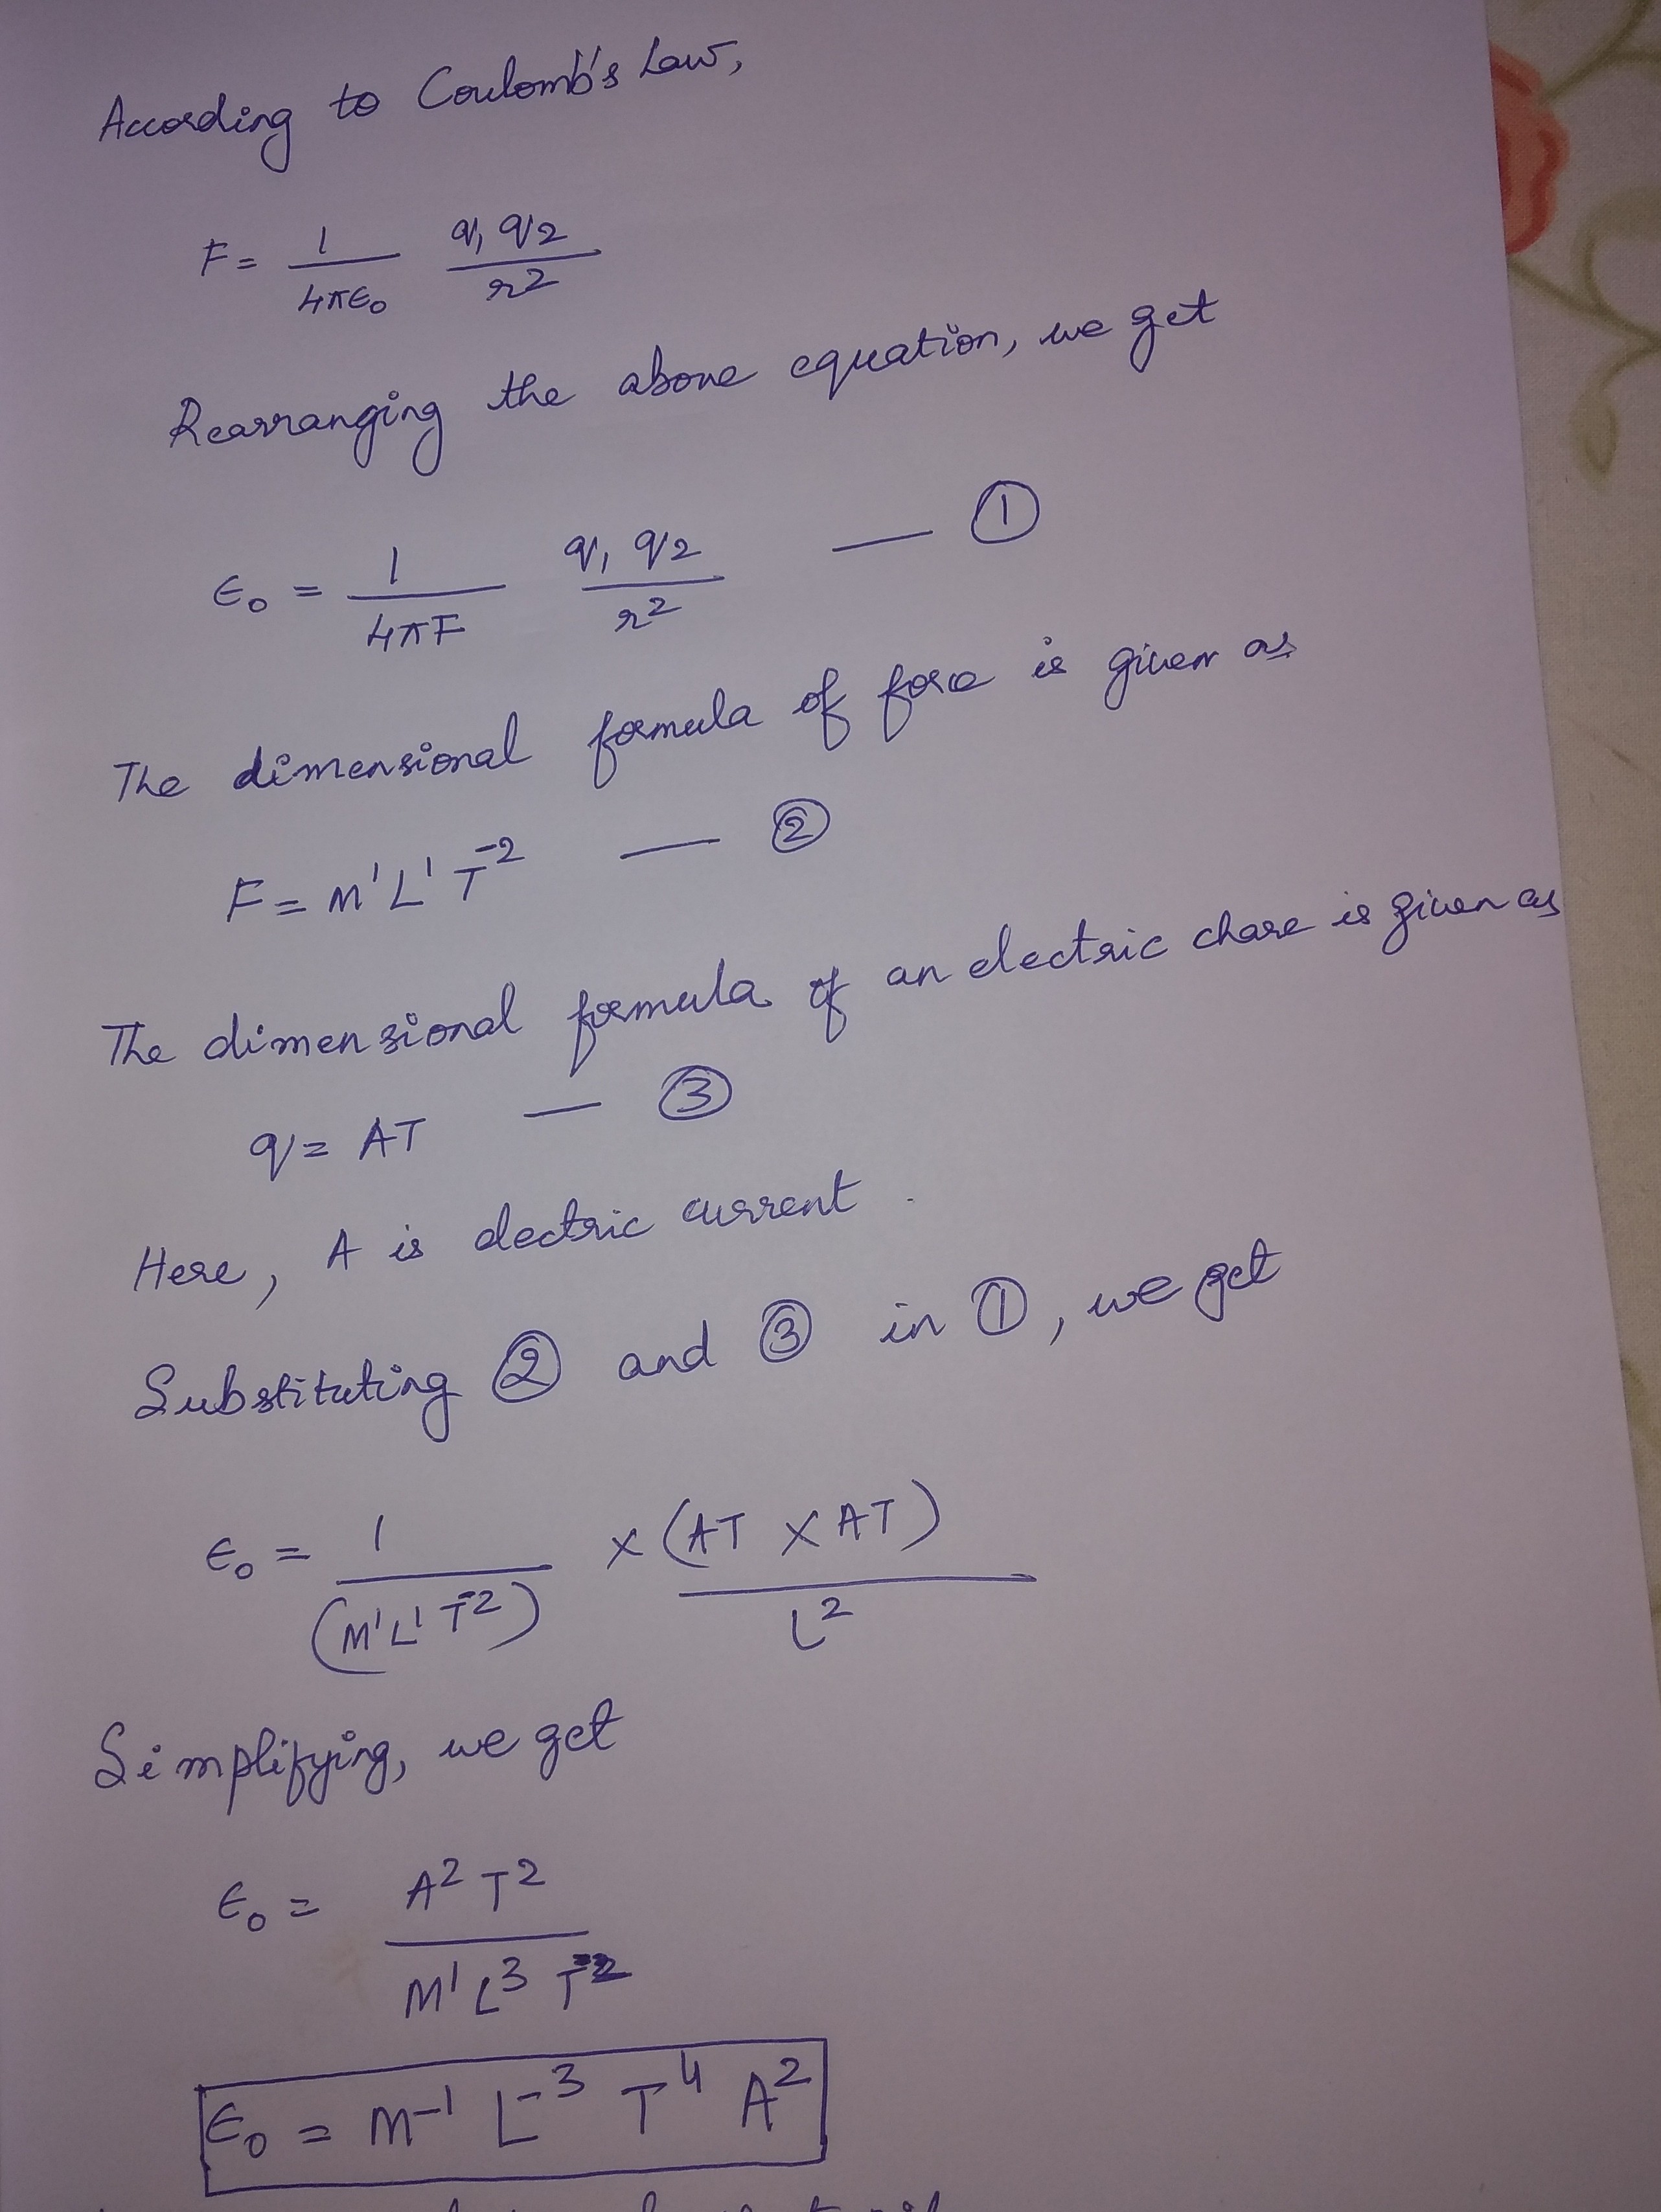 According to Coulomb's Law,
F = 1/4πϵ₀ q₁ q₂/r²
Rearranging the above equation, we get
ϵ₀ = 1/4πF q₁ q₂/r² — ①
The dimensional formula of force is given as
F = M¹ L¹ T⁻² — ②
The dimensional formula of an electric chare is given as
q = AT — ③
Here, A is electric current.
Substituting ② and ③ in ①, we get
ϵ₀ = 1/(M¹L¹T⁻²) × (AT × AT)/L²
Simplifying, we get
ϵ₀ = A² T²/M¹ L³ T⁻²
ϵ₀ = M⁻¹ L⁻³ T⁴ A²